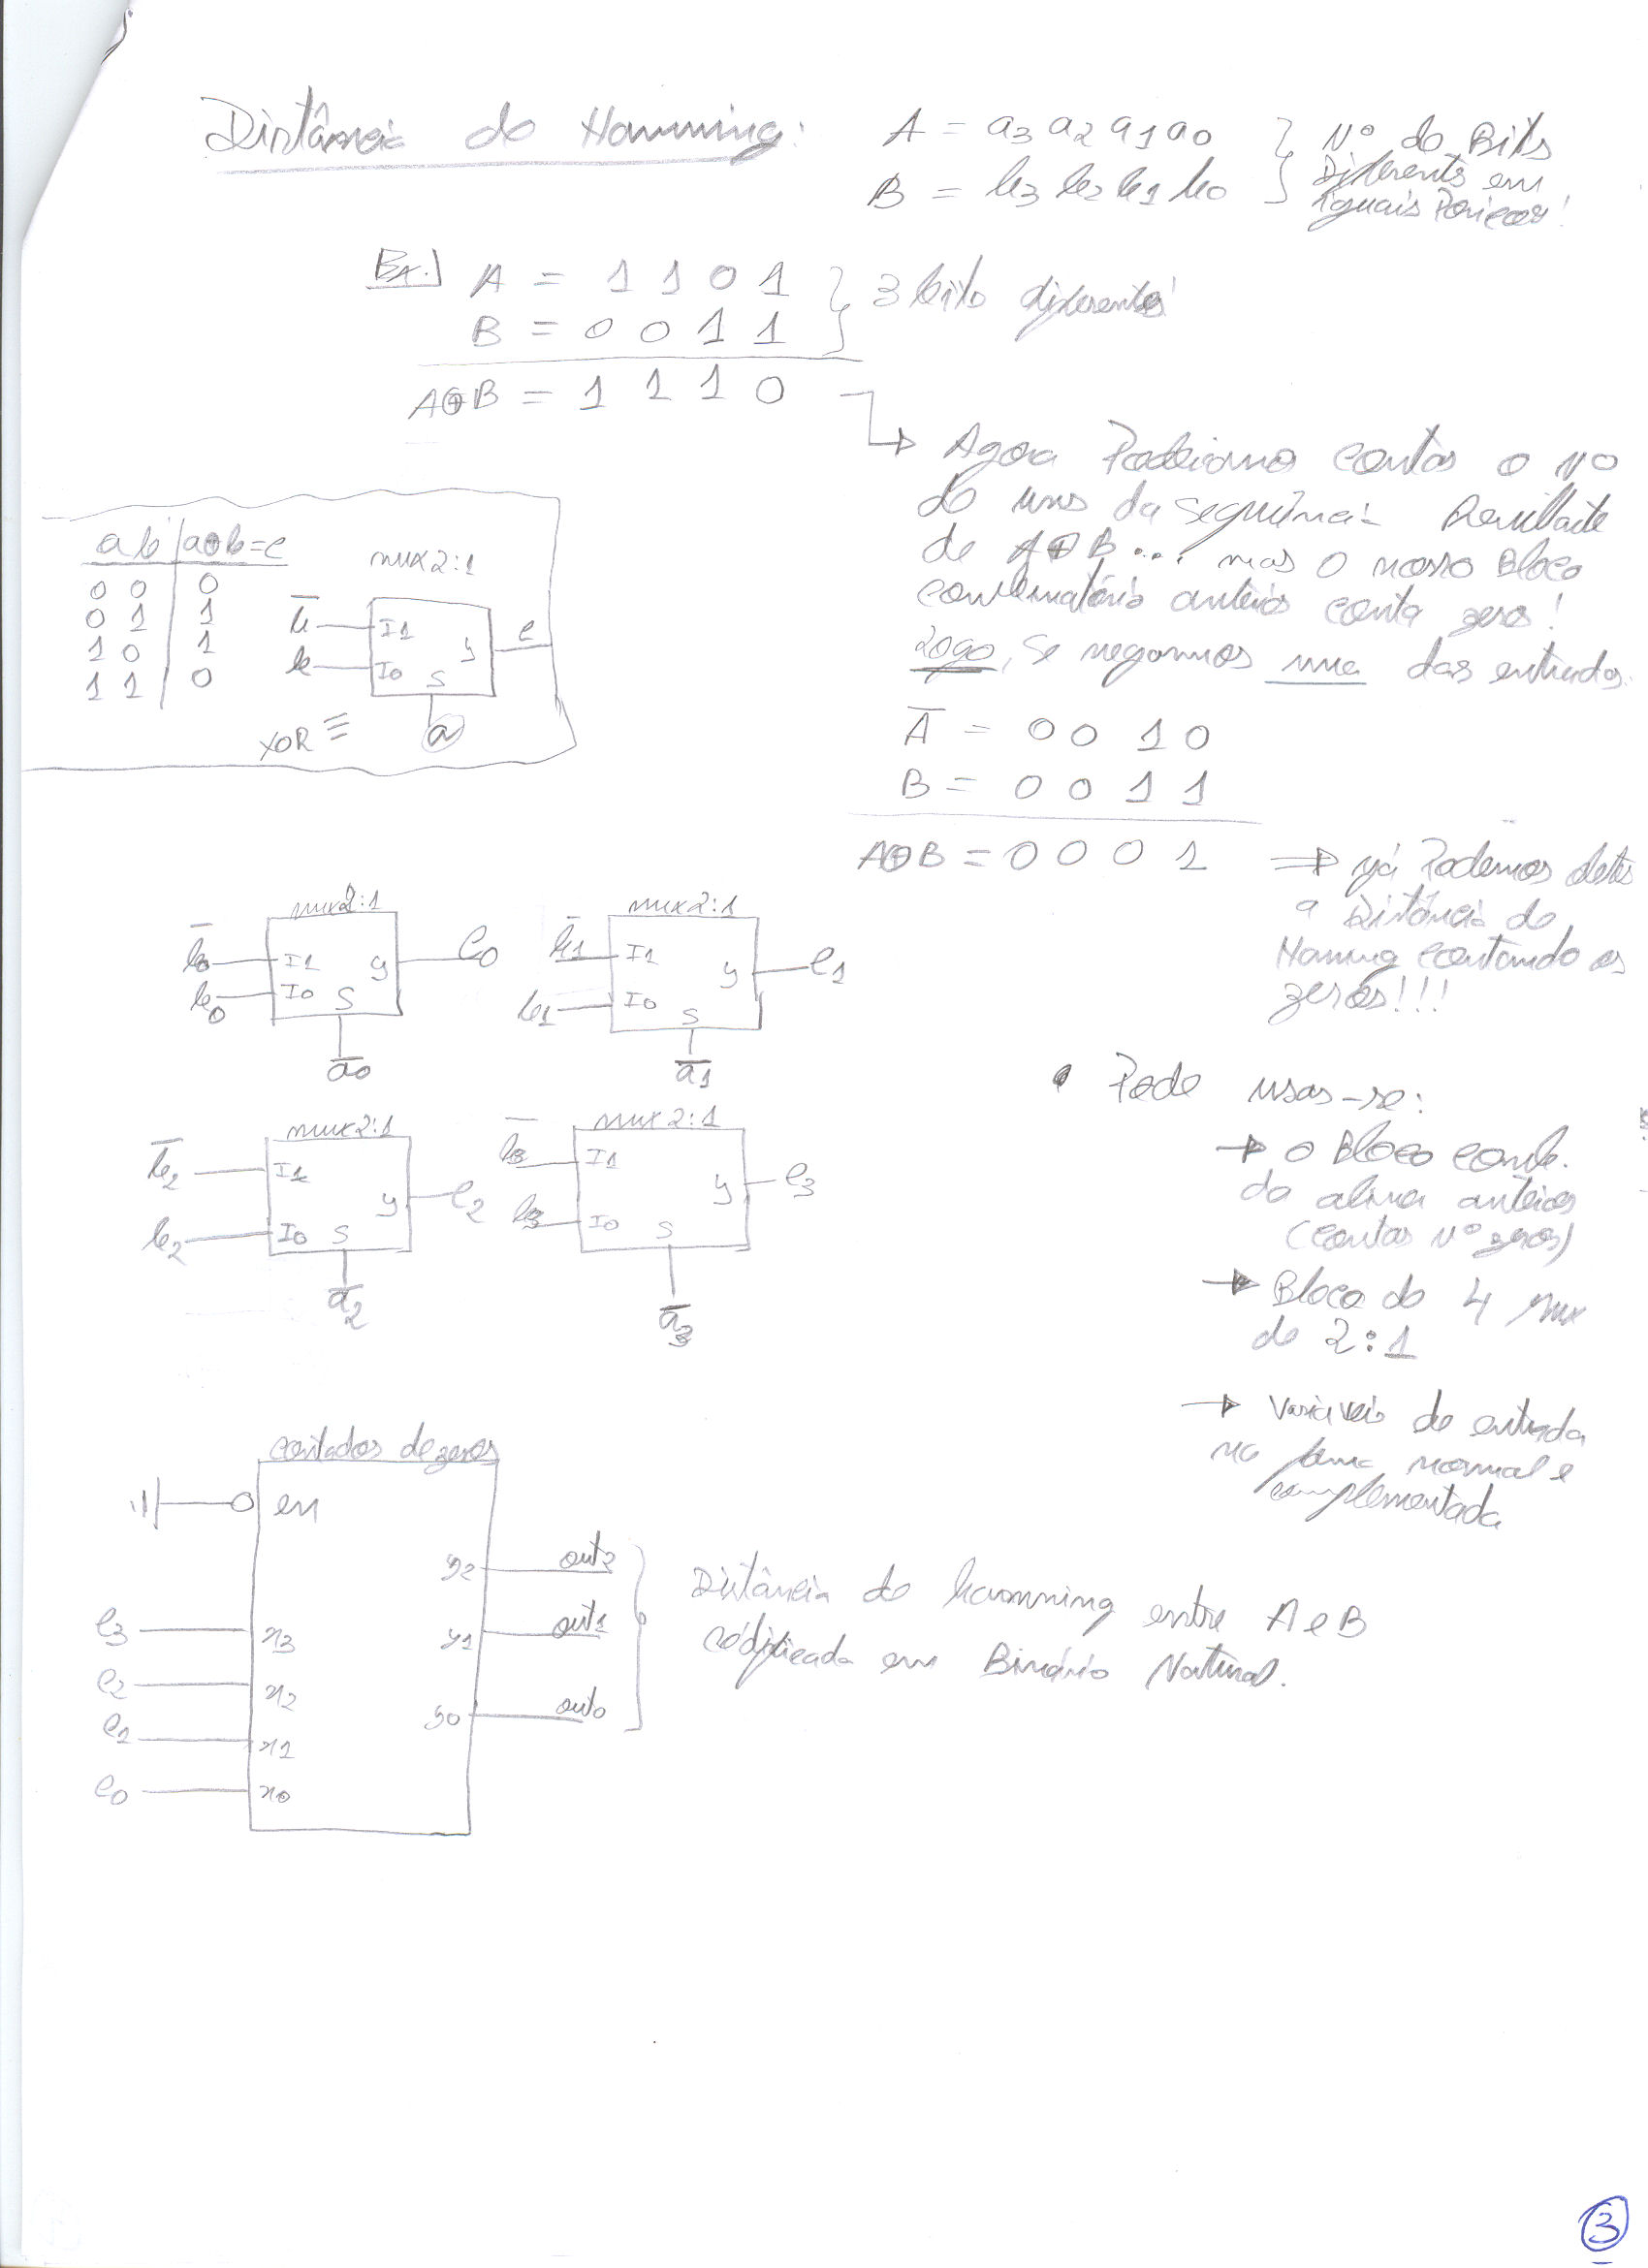 Distância de Hamming:
A = a3 a2 a1 a0
B = b3 b2 b1 b0
Nº de Bits
Diferentes em
iguais Posições!
Ex.) A = 1 1 0 1
B = 0 0 1 1
3 bits diferentes!
A⊕B = 1 1 1 0
→ Agora Podíamos contar o nº
de uns da sequência Resultante
de A⊕B... mas o nosso Bloco
combinatório anterior conta zeros!
Logo, se negarmos uma das entradas:
a b | a⊕b=c
0 0 | 0
0 1 | 1
1 0 | 1
1 1 | 0
mux2:1
b̅ I1
b I0
S
y
c
a
XOR ≡
A̅ = 0 0 1 0
B = 0 0 1 1
A⊕B = 0 0 0 1
⇒ já Podemos obter
a Distância de
Hamming contando os
zeros!!!
mux2:1
b̅0 I1
b0 I0
S
y
c0
a̅0
mux2:1
b̅1 I1
b1 I0
S
y
c1
a̅1
mux2:1
b̅2 I1
b2 I0
S
y
c2
a̅2
mux2:1
b̅3 I1
b3 I0
S
y
c3
a̅3
• Pode usar-se:
→ o Bloco comb.
da alínea anterior
(contar nº zeros)
→ Bloco de 4 mux
de 2:1
→ Variáveis de entrada
na forma normal e
complementada
contador de zeros
en
c3 x3
c2 x2
c1 x1
c0 x0
y2 out2
y1 out1
y0 out0
Distância de hamming entre A e B
codificada em Binário Natural.
3